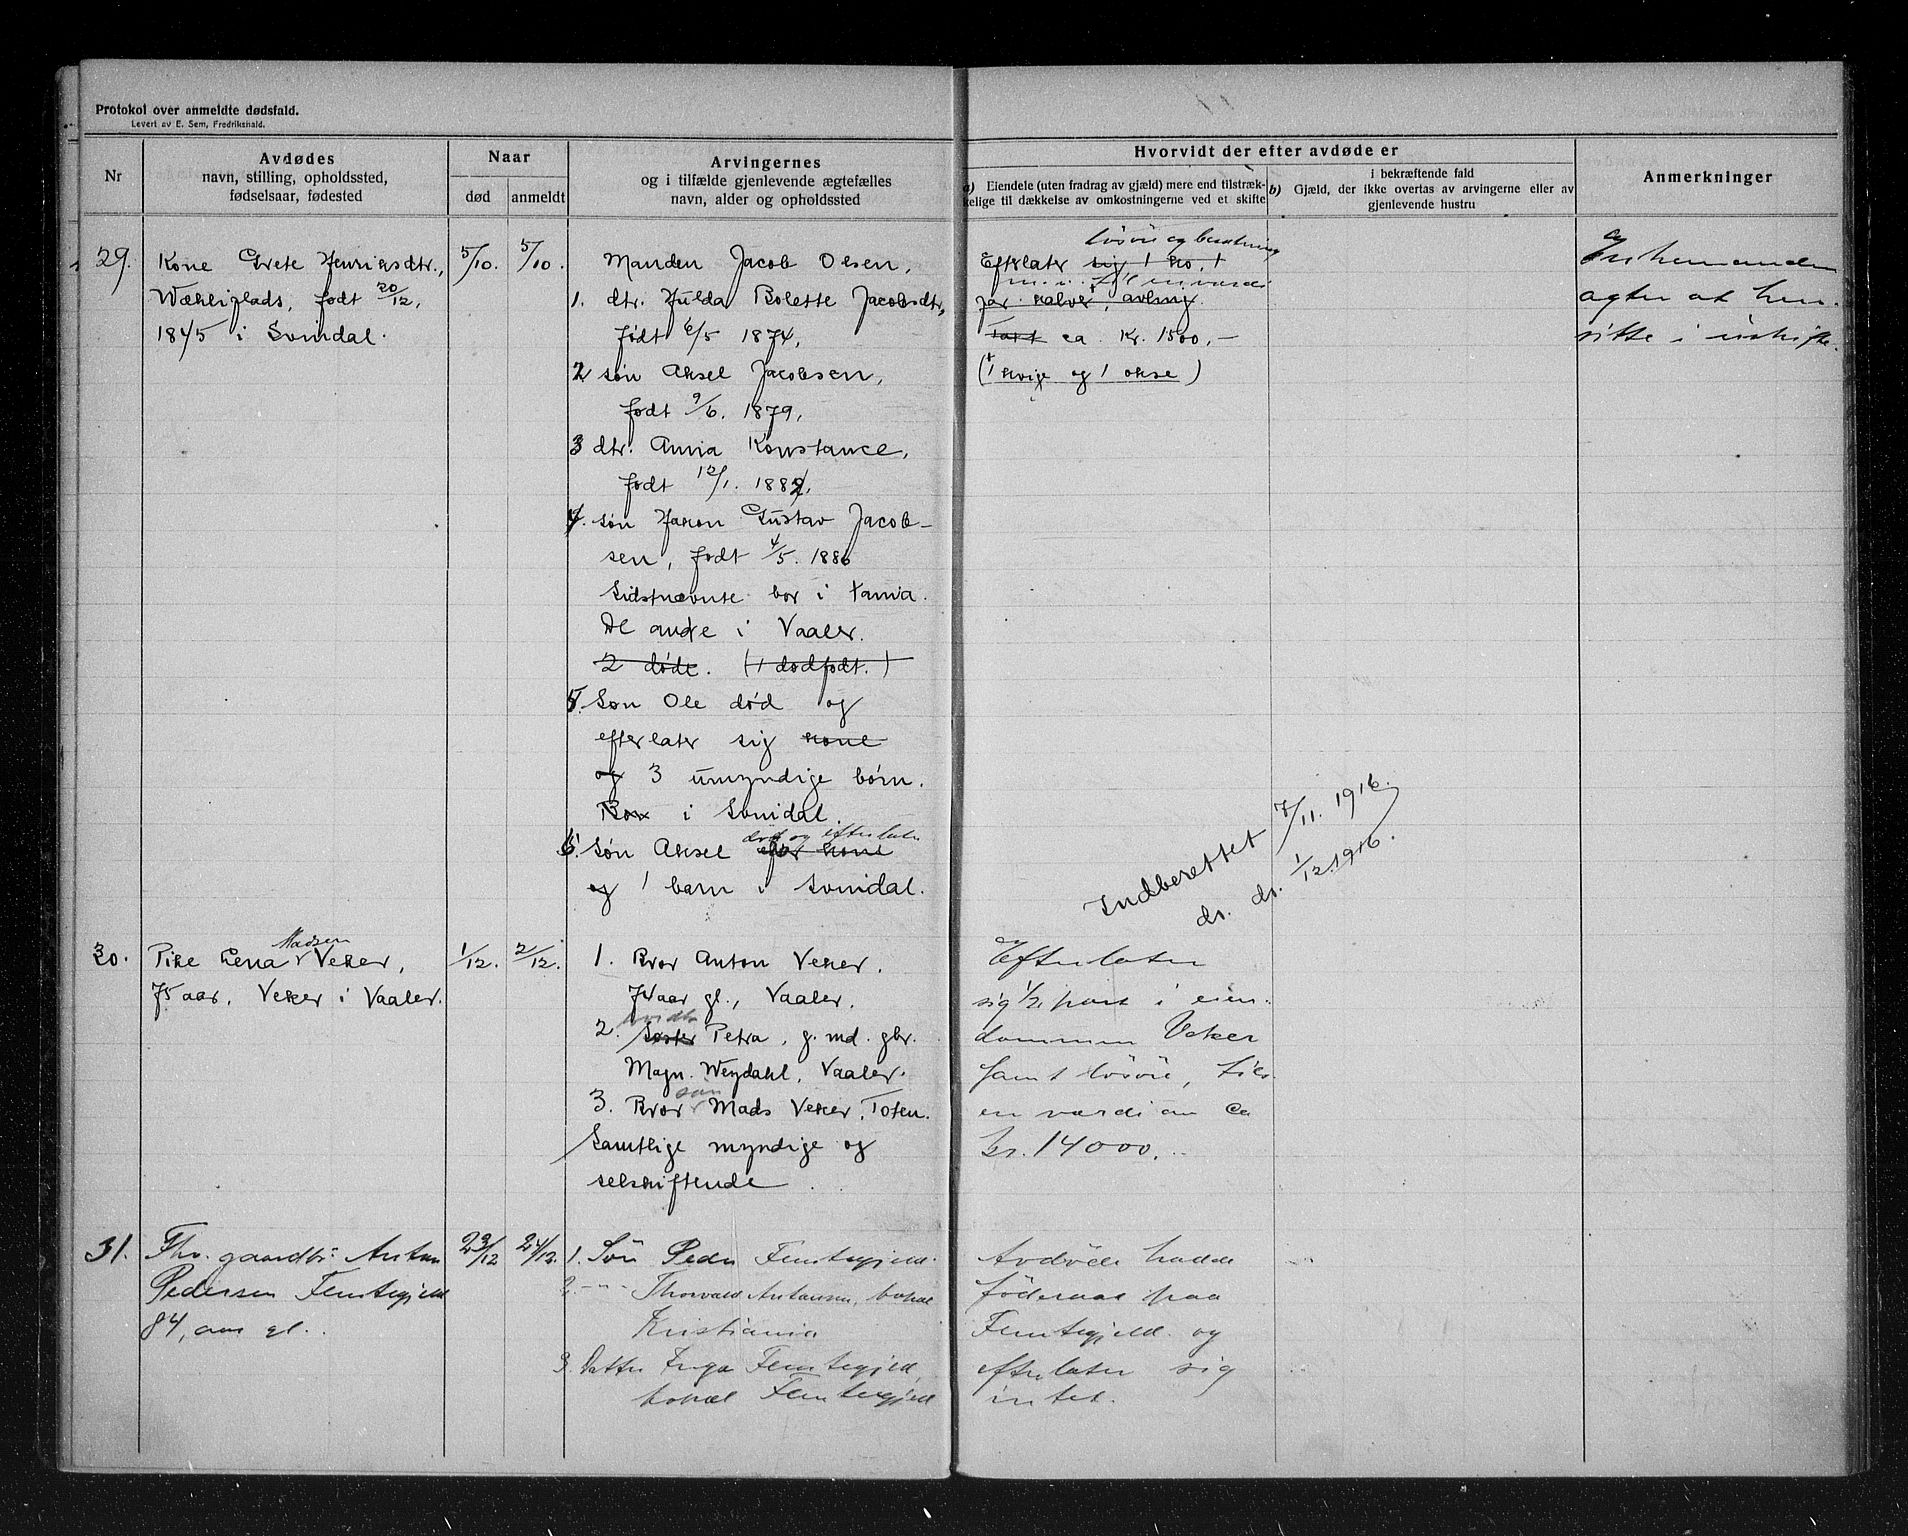 Protokol over anmeldte dødsfald.
Levert av E. Sem, Fredrikshald.
Nr
Avdødes
navn, stilling, opholdssted,
fødselsaar, fødested
Naar
død
anmeldt
Arvingernes
og i tilfælde gjenlevende ægtefælles
navn, alder og opholdssted
Hvorvidt der efter avdøde er
a) Eiendele (uten fradrag av gjæld) mere end tilstræk-
kelige til dækkelse av omkostningerne ved et skifte
i bekræftende fald
b) Gjæld, der ikke overtas av arvingerne eller av
gjenlevende hustru
Anmerkninger
29.
Kone Grete Henriksdtr.,
født 20/12,
1845 i Svindal.
5/10.
5/10.
Manden Jacob Olsen,
1. dtr. Hulda Bolette Jacobsdtr,
født 6/5 1874,
2 søn Aksel Jacobsen,
født 9/6. 1879,
3 dtr. Anna Konstance,
født 12/1. 1882,
4. søn Hakon Gustav Jacob-
sen, født 4/5. 1886
Sidstnævnte bor i
De andre i Vaaler.
2 døde. (1 dødfødt.)
5. Søn Ole død og
efterlater sig kone
og 3 umyndige børn.
Bor i Svindal.
død og efterlater
6. Søn Aksel før kone
og 1 barn i Svindal.
løsøre og besætning
Efterlater sig 1 ko, 1
m.m. til en værdi
par kalver, avling.
Takst ca. Kr. 1500,-
(1 kvige og 1 okse)
Enkemanden
agter at hen-
sitte i uskifte.
Indberettet 7/11. 1916.
do. do. 1/12. 1916.
30.
Madsen
Pike Lena Veker,
75 aar, Veker i Vaaler.
1/12.
2/12.
1. Bror Anton Veker.
74 aar gl., Vaaler.
2. Søster Petra, g. md. gbr.
Magn. Weydahl, Vaaler.
søn
3. Bror Mads Veker, Toten.
Samtlige myndige og
selskiftende
Efterlater
sig 1/2 part i eien-
dommen Veker
samt løsøre, til
en værdi av ca
kr. 14000.
31.
Fhv. gaardbr. Anton
Pedersen Femtegjeld
84, aar gl.
23/12
24/12.
1. Søn Peder Femtegjeld.
2. --- Thorvald Antonsen, bopæl
Kristiania
3. Datter Inga Femtegjeld,
bopæl Femtegjeld
Avdøde hadde
føderaad paa
Femtegjeld og
efterlater sig
intet.